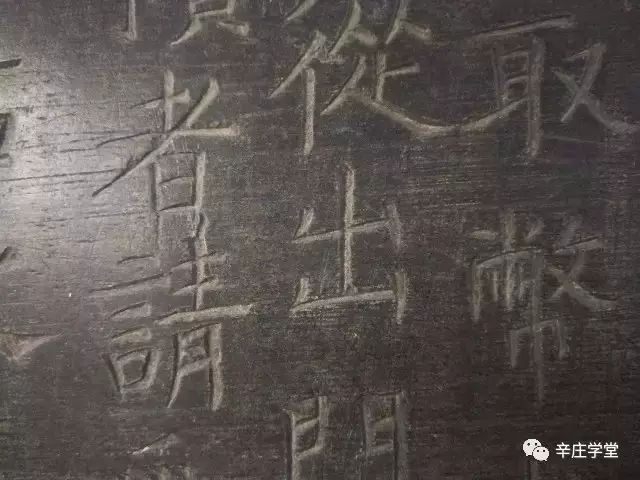 取幣
從出門
者請
辛庄学堂